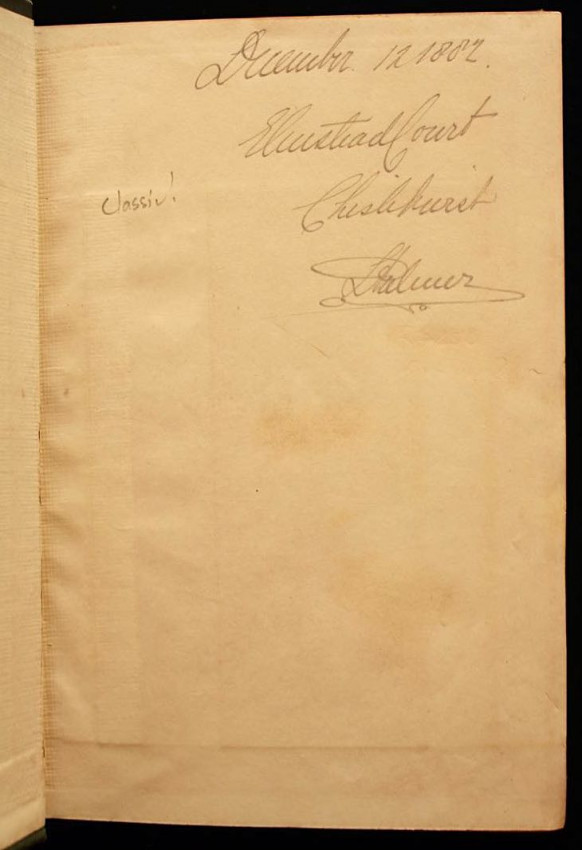 December. 12 1882.
Elmstead Court
Chislehurst
classic!